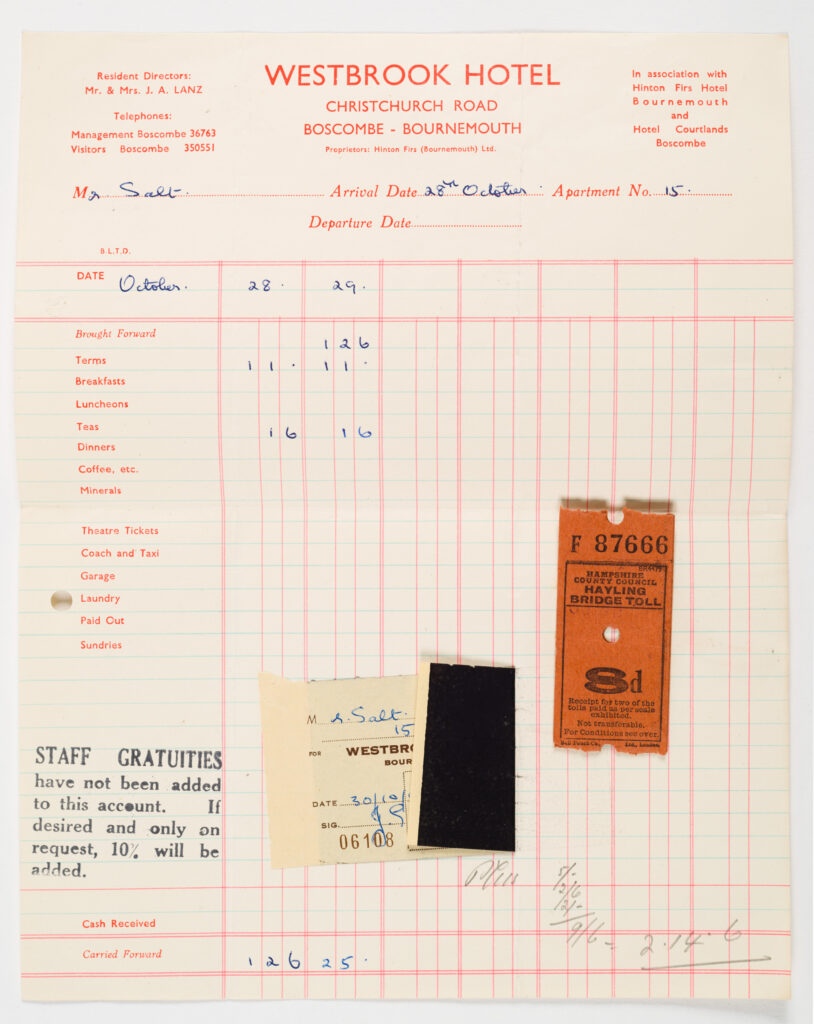 Resident Directors:
Mr. & Mrs. J. A. LANZ
Telephones:
Management Boscombe 36763
Visitors Boscombe 350551
WESTBROOK HOTEL
CHRISTCHURCH ROAD
BOSCOMBE - BOURNEMOUTH
Proprietors: Hinton Firs (Bournemouth) Ltd.
In association with
Hinton Firs Hotel
Bournemouth
and
Hotel Courtlands
Boscombe
Mr Salt. Arrival Date 28th October. Apartment No. 15.
Departure Date
B.L.T.D.
DATE October. 28. 29.
Brought Forward 1 2 6
Terms 1 1 . 1 1 .
Breakfasts
Luncheons
Teas 1 6 1 6
Dinners
Coffee, etc.
Minerals
Theatre Tickets
Coach and Taxi
Garage
Laundry
Paid Out
Sundries
F 87666
HAMPSHIRE
COUNTY COUNCIL
HAYLING
BRIDGE TOLL
8d
Receipt for two of the
tolls paid as per scale
exhibited.
Not transferable.
For Conditions see over.
Bell Punch Co., Ltd., London
M r. Salt.
15
FOR WESTBRO
BOUR
DATE 30/10/
SIG.
06108
STAFF GRATUITIES
have not been added
to this account. If
desired and only on
request, 10% will be
added.
Cash Received
Carried Forward 1 2 6 2 5 .
9/6 - 2.14.6